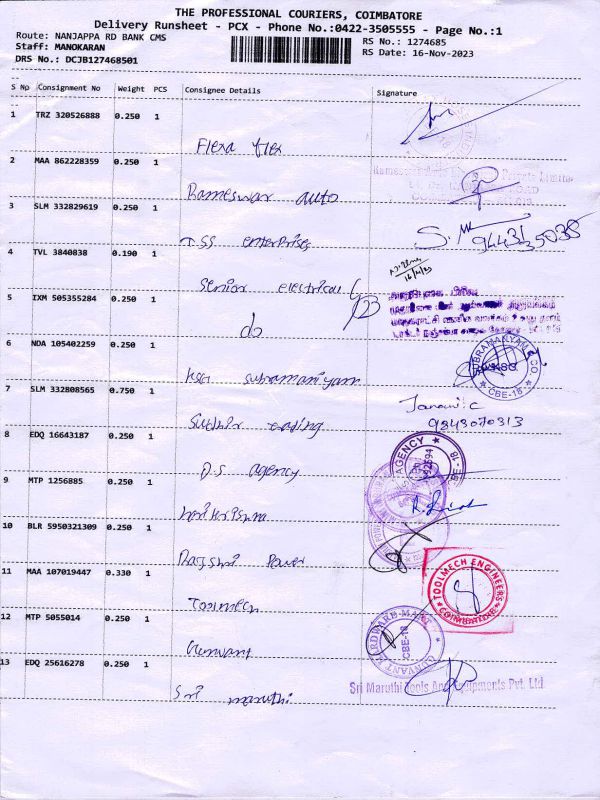 THE PROFESSIONAL COURIERS, COIMBATORE
Delivery Runsheet - PCX - Phone No.:0422-3505555 - Page No.:1
Route: NANJAPPA RD BANK CMS
RS No.: 1274685
Staff: MANOKARAN
RS Date: 16-Nov-2023
DRS No.: DCJB127468501
S No Consignment No Weight PCS Consignee Details Signature
1 TRZ 320526888 0.250 1
Flexa flex
2 MAA 862228359 0.250 1
Rameswar auto
3 SLM 332829619 0.250 1
TSS enterprises
S. M 9443135038
4 TVL 3840838 0.190 1
Senior electrical
16/11/23
5 IXM 505355284 0.250 1
do
6 NDA 105402259 0.250 1
KSG subramaniyam
SUBRAMANYAM & CO
CBE-18
7 SLM 332808565 0.750 1
Sudhir trading
Janani C
9843070313
8 EDQ 16643187 0.250 1
D.S agency
AGENCY
9 MTP 1256885 0.250 1
10 BLR 5950321309 0.250 1
Rajshri Power
11 MAA 107019447 0.330 1
Toolmech
TOOLMECH ENGINEERS
COIMBATORE
12 MTP 5055014 0.250 1
Gunvant
GUNVANT HARDWARE MART
CBE-18
13 EDQ 25616278 0.250 1
Sri maruthi
Sri Maruthi Tools And Equipments Pvt. Ltd